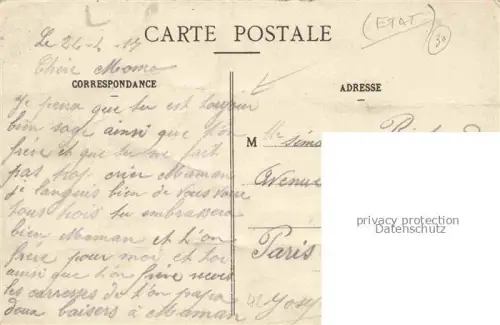 (ETAT)
30
CARTE POSTALE
Le 24-4-17
Chère Momo
CORRESPONDANCE
ADRESSE
Je pense que tu est toujour
bien sage ainsi que ton
frère et que tu ne fait
pas trop crier Maman
je languis bien de vous voir
tous trois tu embrassera
bien Maman et t'on
frère pour moi et toi
ainsi que t'on frère recois
les carresses de t'on papa
doux baisers à Maman
M lle Simo
Avenue
Paris
privacy protection
Datenschutz